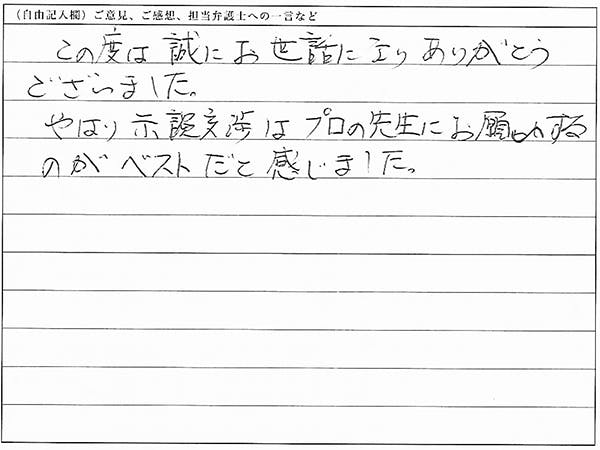 （自由記入欄）ご意見、ご感想、担当弁護士への一言など
この度は誠にお世話になりありがとう
ございました。
やはり示談交渉はプロの先生にお願いする
のがベストだと感じました。